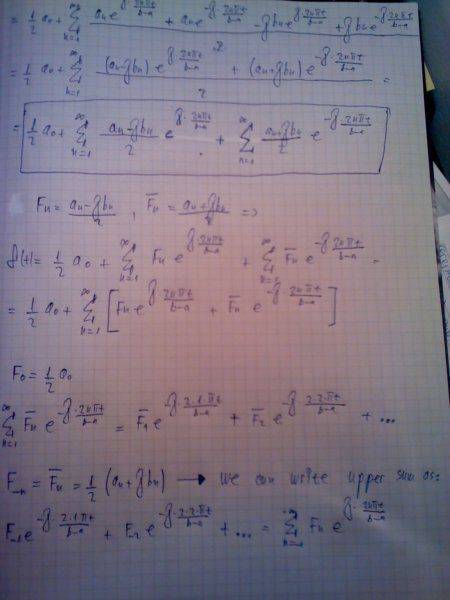 = 1/2 a₀ + ∑_{n=1}^{∞} (aₙe^{j·2nπt/(b-a)} + aₙe^{-j·2nπt/(b-a)} - jbₙe^{j·2nπt/(b-a)} + jbₙe^{-j·2nπt/(b-a)})/2
= 1/2 a₀ + ∑_{n=1}^{∞} ((aₙ-jbₙ)e^{j·2nπt/(b-a)} + (aₙ+jbₙ)e^{-j·2nπt/(b-a)})/2 =
= 1/2 a₀ + ∑_{n=1}^{∞} (aₙ-jbₙ)/2 e^{j·2nπt/(b-a)} + ∑_{n=1}^{∞} (aₙ+jbₙ)/2 e^{-j·2nπt/(b-a)}
Fₙ = (aₙ-jbₙ)/2 , F̅ₙ = (aₙ+jbₙ)/2 =>
f(t) = 1/2 a₀ + ∑_{n=1}^{∞} Fₙ e^{j·2nπt/(b-a)} + ∑_{n=1}^{∞} F̅ₙ e^{-j·2nπt/(b-a)} =
= 1/2 a₀ + ∑_{n=1}^{∞} [Fₙ e^{j·2nπt/(b-a)} + F̅ₙ e^{-j·2nπt/(b-a)}]
F₀ = 1/2 a₀
∑_{n=1}^{∞} F̅ₙ e^{-j·2nπt/(b-a)} = F̅₁ e^{-j·2·1πt/(b-a)} + F̅₂ e^{-j·2·2πt/(b-a)} + ...
F₋ₙ = F̅ₙ = 1/2 (aₙ+jbₙ) → we can write upper sum as:
F₋₁ e^{-j·2·1πt/(b-a)} + F₋₂ e^{-j·2·2πt/(b-a)} + ... = ∑_{n=-1}^{-∞} Fₙ e^{j·2nπt/(b-a)}